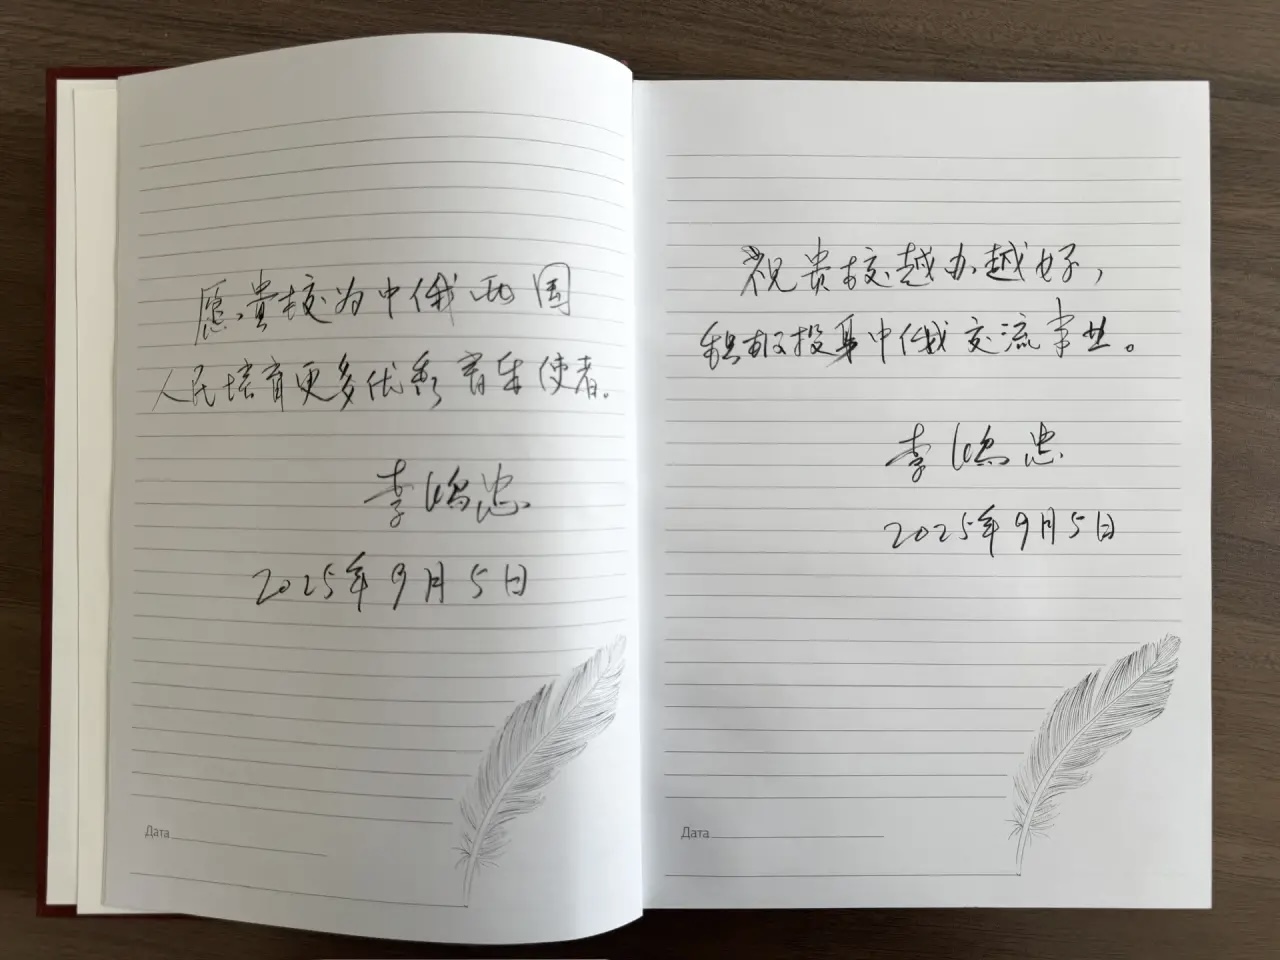 愿贵校为中俄两国
人民培育更多优秀音乐使者。
李鸿忠
2025年9月5日
Дата
祝贵校越办越好，
积极投身中俄交流事业。
李鸿忠
2025年9月5日
Дата